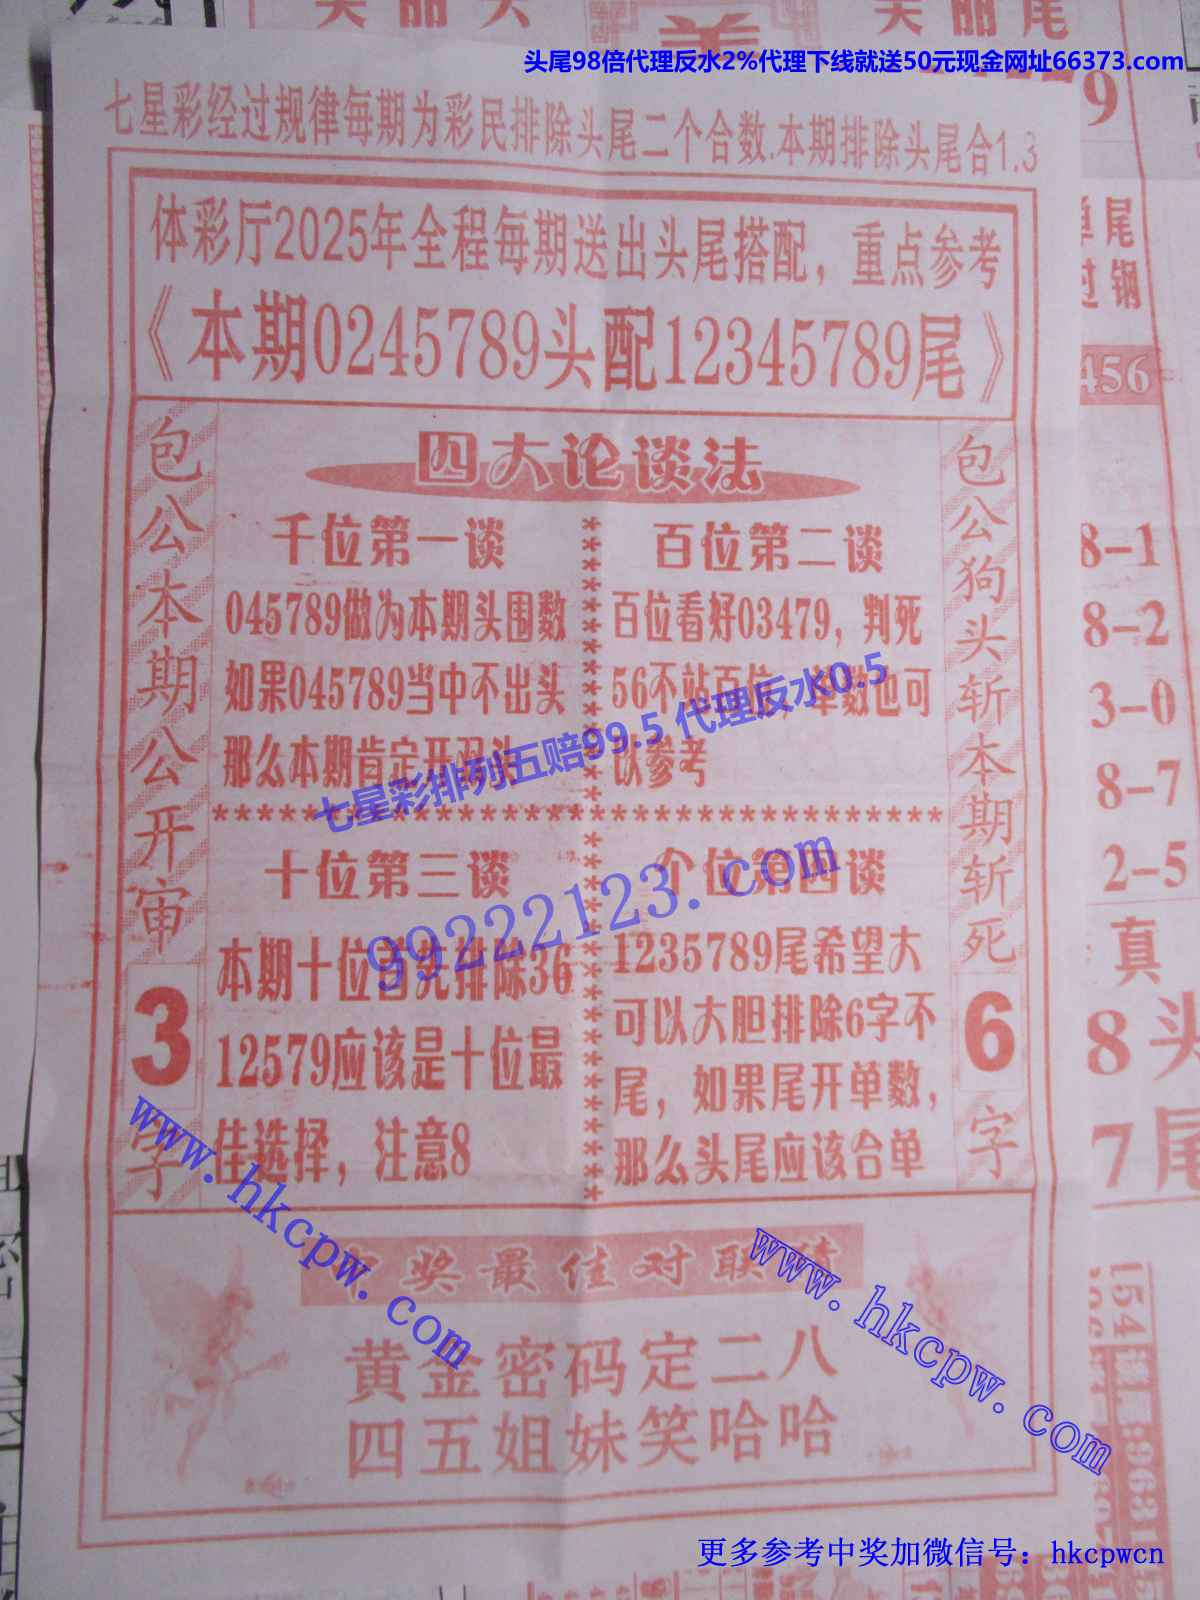 美丽头
美
美丽尾
头尾98倍代理反水2%代理下线就送50元现金网址66373.com
9
七星彩经过规律每期为彩民排除头尾二个合数.本期排除头尾合1.3
体彩厅2025年全程每期送出头尾搭配，重点参考
《本期0245789头配12345789尾》
单尾
过钢
456
包公本期公开审
3
字
四大论谈法
千位第一谈
045789做为本期头围数
如果045789当中不出头
那么本期肯定开双头
百位第二谈
百位看好03479，判死
56不站百位，单数也可
以参考
七星彩排列五赔99.5 代理反水0.5
******************************
十位第三谈
本期十位首先排除36
12579应该是十位最
佳选择，注意8
个位第四谈
1235789尾希望大
可以大胆排除6字不
尾，如果尾开单数，
那么头尾应该合单
99222123.com
包公狗头斩本期斩死
6
字
8-1
8-2
3-0
8-7
2-5
真
8头
7尾
www.hkcpw.com
www.hkcpw.com
奖最佳对联
黄金密码定二八
四五姐妹笑哈哈
154
更多参考中奖加微信号：hkcpwcn